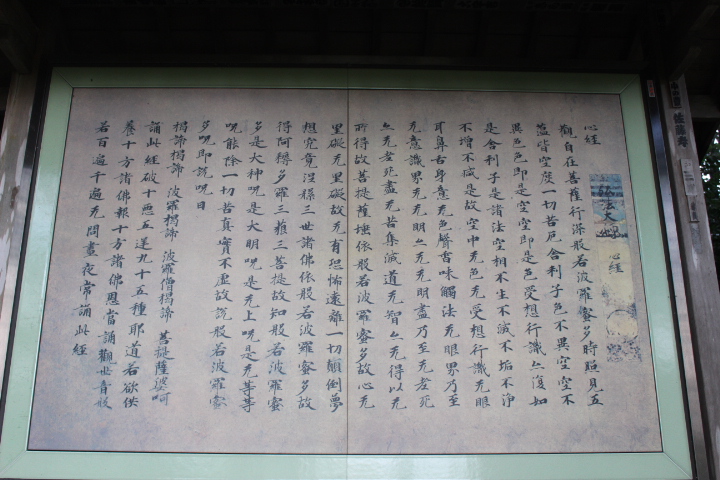 心経
觀自在菩薩行深般若波羅蜜多時照見五
蘊皆空度一切苦厄舍利子色不異空空不
異色色即是空空即是色受想行識亦復如
是舍利子是諸法空相不生不滅不垢不淨
不增不減是故空中无色无受想行識无眼
耳鼻舌身意无色聲香味觸法无眼界乃至
无意識界无无明亦无无明盡乃至无老死
亦无老死盡无苦集滅道无智亦无得以无
所得故菩提薩埵依般若波羅蜜多故心无
罣礙无罣礙故无有恐怖遠離一切顛倒夢
想究竟涅槃三世諸佛依般若波羅蜜多故
得阿耨多羅三藐三菩提故知般若波羅蜜
多是大神呪是大明呪是无上呪是无等等
呪能除一切苦真實不虛故說般若波羅蜜
多呪即說呪曰
揭諦揭諦 波羅揭諦 波羅僧揭諦 菩提薩婆呵
誦此經破十惡五逆九十五種耶道若欲供
養十方諸佛報十方諸佛恩當誦觀世音般
若百遍千遍无間晝夜常誦此經
心經